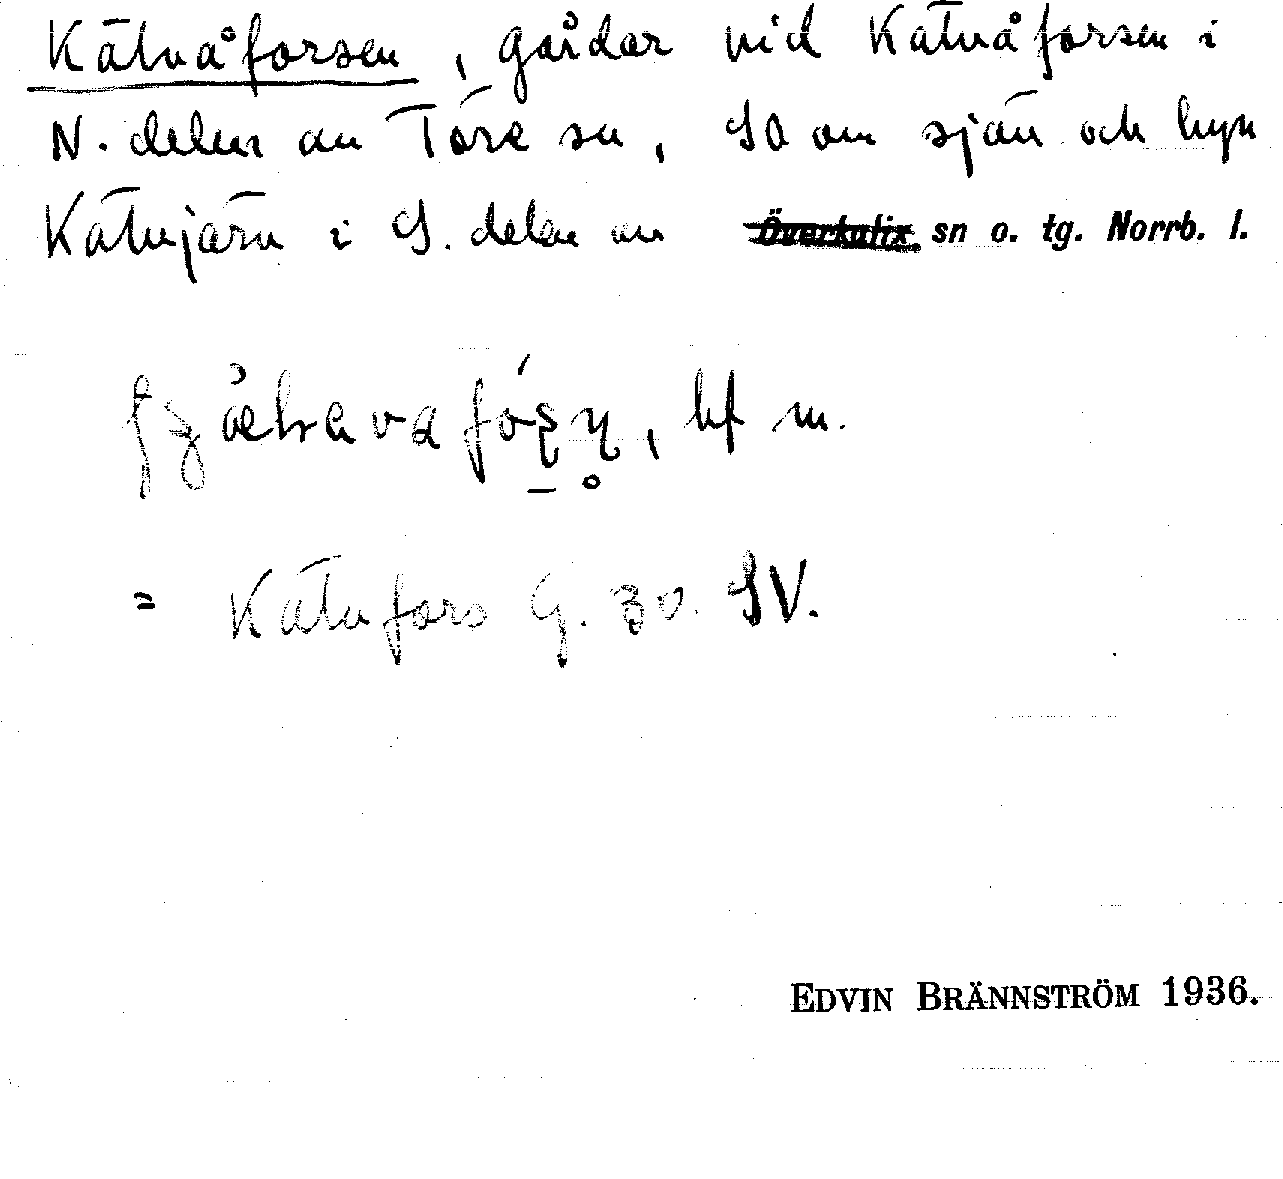 Kätvåforsen, gårdar vid Kätvåforsen i
N. delen av Töre sn, SO om sjön och byn
Kätvjärn i S. delen av Överkalix sn o. tg. Norrb. l.
bf m.
= Kätvfors G. 30. SV.
EDVIN BRÄNNSTRÖM 1936.